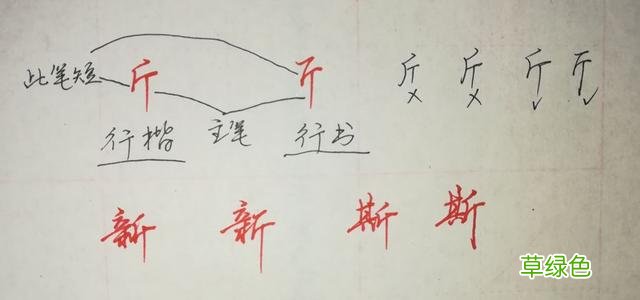 此笔短 斤 斤 斤 斤 斤 斤
行楷 主笔 行书
新 新 斯 斯
草绿色